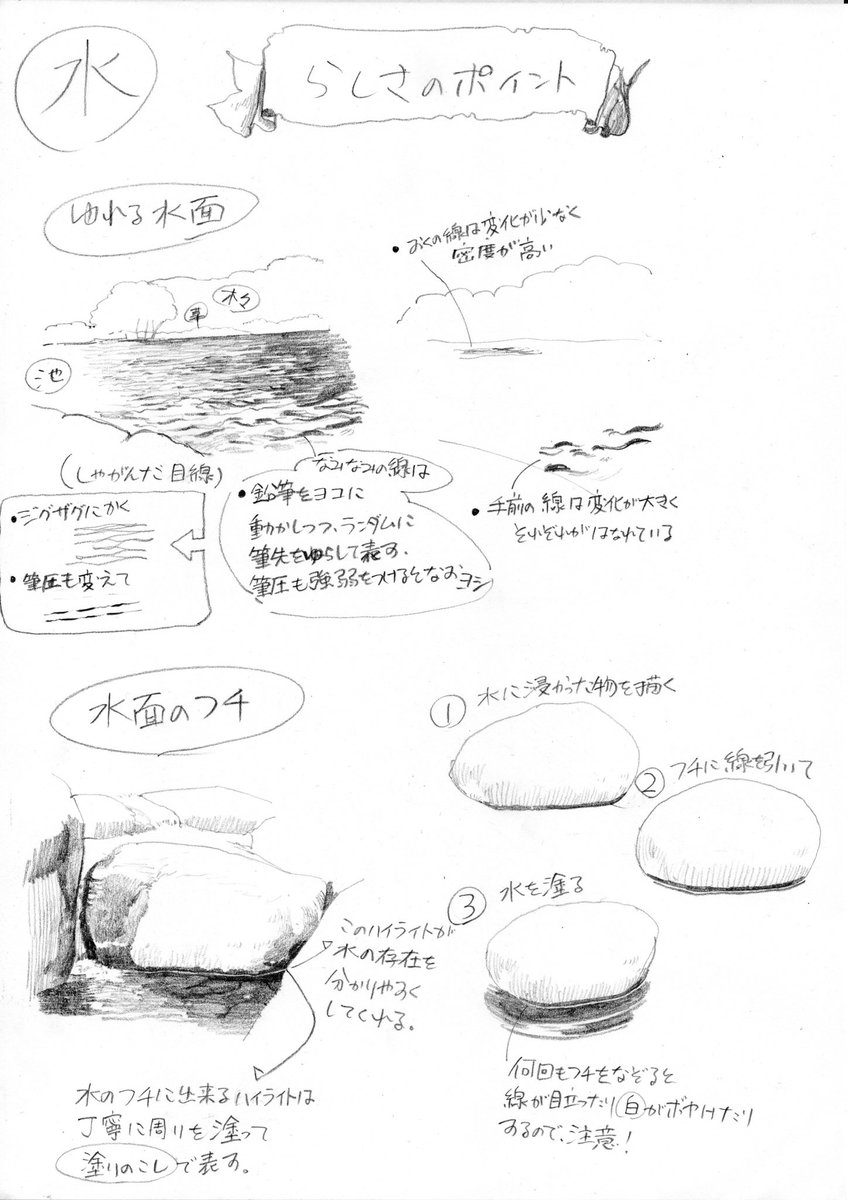 水
らしさのポイント
ゆれる水面
・おくの線は変化が少なく
密度が高い
木々
草
池
(しゃがんだ目線)
なみなみの線は
・鉛筆をヨコに
動かしつつ、ランダムに
筆先をゆらして表す。
筆圧も強弱をつけるとなおヨシ
・ジグザグにかく
・筆圧も変えて
・手前の線は変化が大きく
それぞれがはなれている
水面のフチ
① 水に浸かった物を描く
② フチに線を引いて
③ 水を塗る
このハイライトが
水の存在を
分かりやすく
してくれる。
水のフチに出来るハイライトは
丁寧に周りを塗って
塗りのこしで表す。
何回もフチをなぞると
線が目立ったり白がボヤけたり
するので、注意!